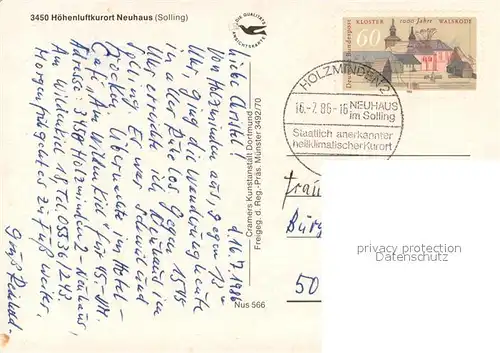 3450 Höhenluftkurort Neuhaus (Solling)
DIE QUALITÄTS
ANSICHTSKARTE
d. 16.7.1986
Liebe Christel!
Von Holzminden aus, gegen 13
Uhr, ging die Wanderung heute
in der Pütelos gegen 15 45
Uhr erreichte ich Neuhaus im
Solling. Es war schwül und
trocken. Übernachte im Hotel-
Café "Am Wildenkiel" für 45.- DM.
Adresse: 3450 Holzminden 2 - Neuhaus,
Am Wildenkiel 18, Tel. 05536/243.
Morgen früh geht es zu Fuß weiter.
Gruß Reinhard
Cramers Kunstanstalt Dortmund
Freigeg. d. Reg.-Präs. Münster 3492/70
Nus 566
Deutsche Bundespost
KLOSTER 1000 Jahre WALSRODE
60
HOLZMINDEN 2
16.-7.86-16
NEUHAUS
im Solling
Staatlich anerkannter
heilklimatischer Kurort
Frau
Bürg
50
privacy protection
Datenschutz